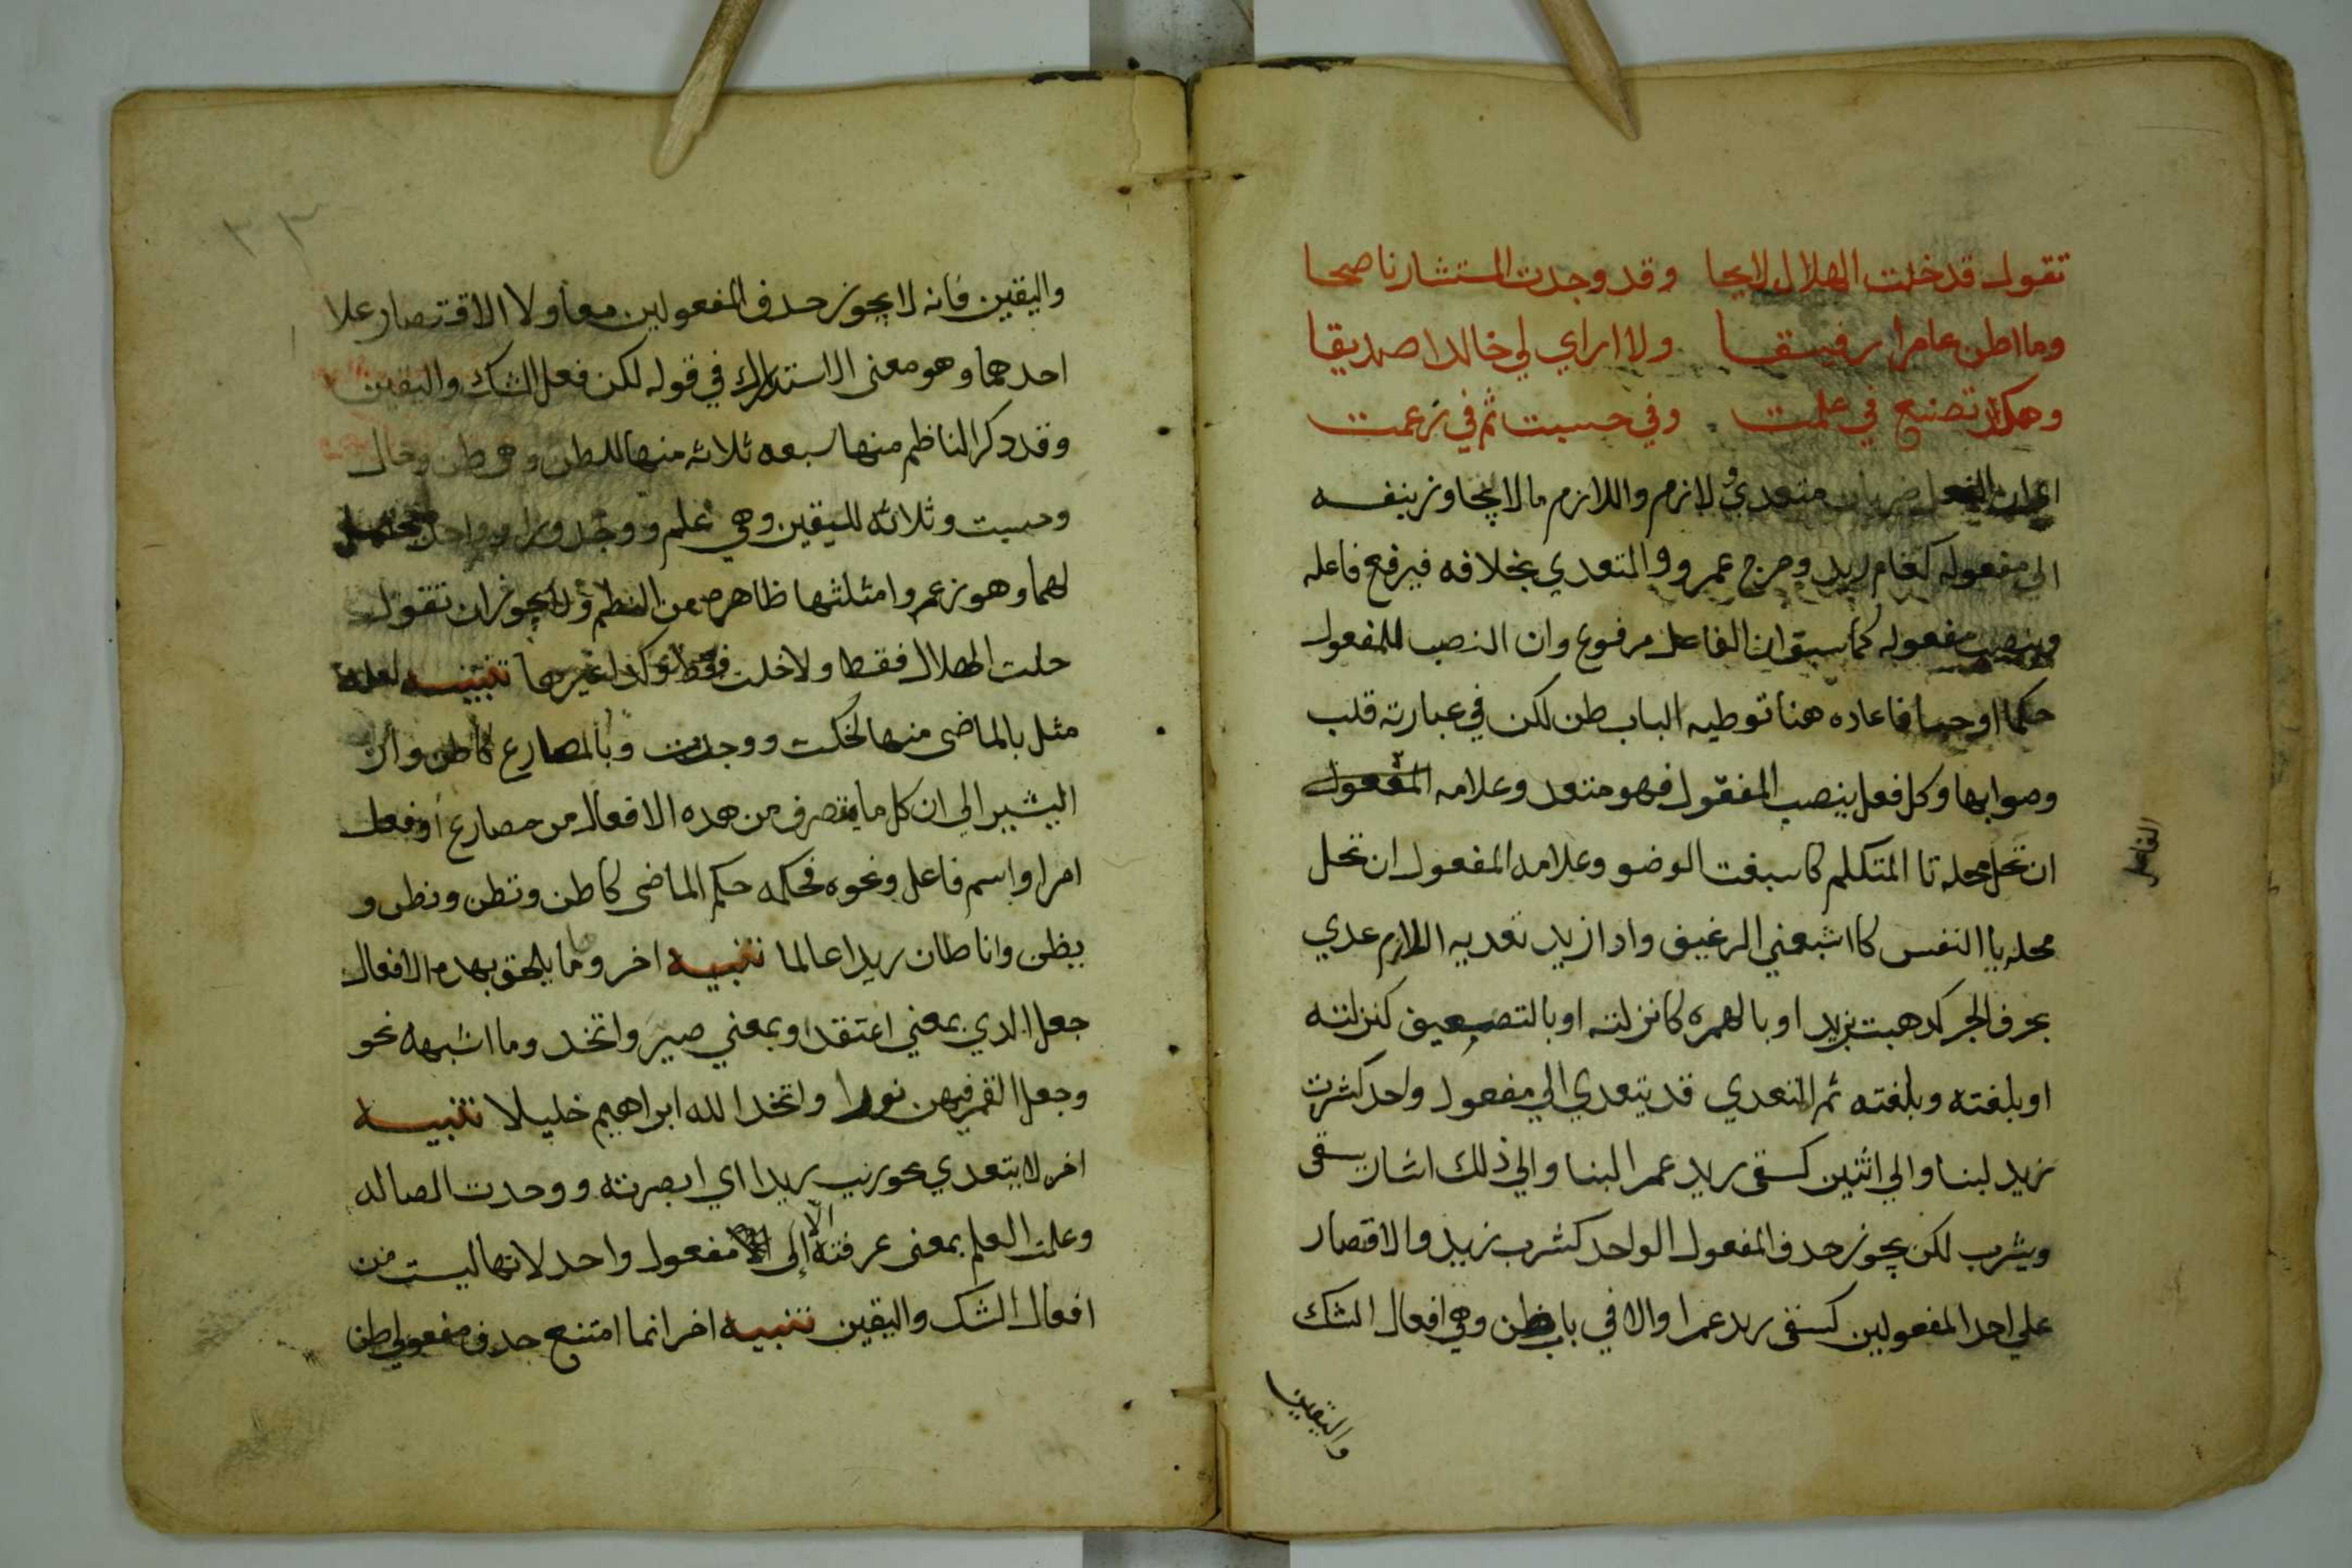 تقول قد خلت الهلال لايحا وقد وجدت المستشار ناصحا
وما اظن عامرا رفيقا ولا اراي لي خالدا صديقا
وهكذا تصنع في علمت وفي حسبت ثم في زعمت
الفعل ضربان متعدي ولازم واللازم ما لا يتجاوز بنفسه
الى مفعوله كقام زيد وخرج عمرو والمتعدي بخلافه فيرفع فاعله
وينصب مفعوله كما سبق ان الفاعل مرفوع وان النصب للمفعول
حكما اوجبا فاعاده هنا توطيه الباب ظن لكن في عبارته قلب
وصوابها وكل فعل ينصب المفعول فهو متعد وعلامه المفعول
الفاعل
ان تحل محله تا المتكلم كاسبغت الوضو وعلامه المفعول ان تحل
محله يا النفس كاشبعني الرغيف واذا زيد تعديه اللازم عدي
بحرف الجر كدهبت بزيد او بالهمزه كانزلته او بالتضعيف كنزلته
او بلغته وبلغته ثم المتعدي قد يتعدي الي مفعول واحد كشرب
زيد لبنا والي اثنين كسقى زيد عمرا لبنا والي ذلك اشار بسقى
ويشرب لكن يجوز حدف المفعول الواحد كشرب زيد والاقتصار
علي احد المفعولين كسقى زيد عمرا والا في باب ظن وهي افعال الشك
واليقين
٣٣
واليقين فانه لا يجوز حدف المفعولين معا ولا الاقتصار علا
احدهما وهو معنى الاستدراك في قوله لكن فعل الشك واليقين
وقد دكر الناظم منها سبعه ثلاثه منها للظن وهي ظن وخال
وحسبت وثلاثه لليقين وهي علم ووجد ورا وواحد محتمل
لهما وهو زعم وامثلتها ظاهره من النظم ولا يجوز ان تقول
خلت الهلال فقط ولا خلت فقط وكذا غيرها تنبيه
مثل بالماضى منها كخلت ووجدت وبالمضارع كاظن وارا
اليشير الي ان كل ما يتصرف من هده الافعال من مضارع او فعل
امر او اسم فاعل ونحوه فحكمه حكم الماضى كاظن وتظن ونظن و
يظن وانا ظان زيدا عالما تنبيه اخر ومما يلحق بهده الافعال
جعل الدي بمعني اعتقد او بمعني صير واتخد وما اشبهه نحو
وجعل القمر فيهن نورا واتخد الله ابراهيم خليلا تنبيه
اخر لا يتعدي نحو رايت زيدا اي ابصرته ووجدت الضاله
وعلمت العلم بمعنى عرفته الا إلى مفعول واحد لانها ليست من
افعال الشك واليقين تنبيه اخر انما امتنع حدف مفعولي ظن